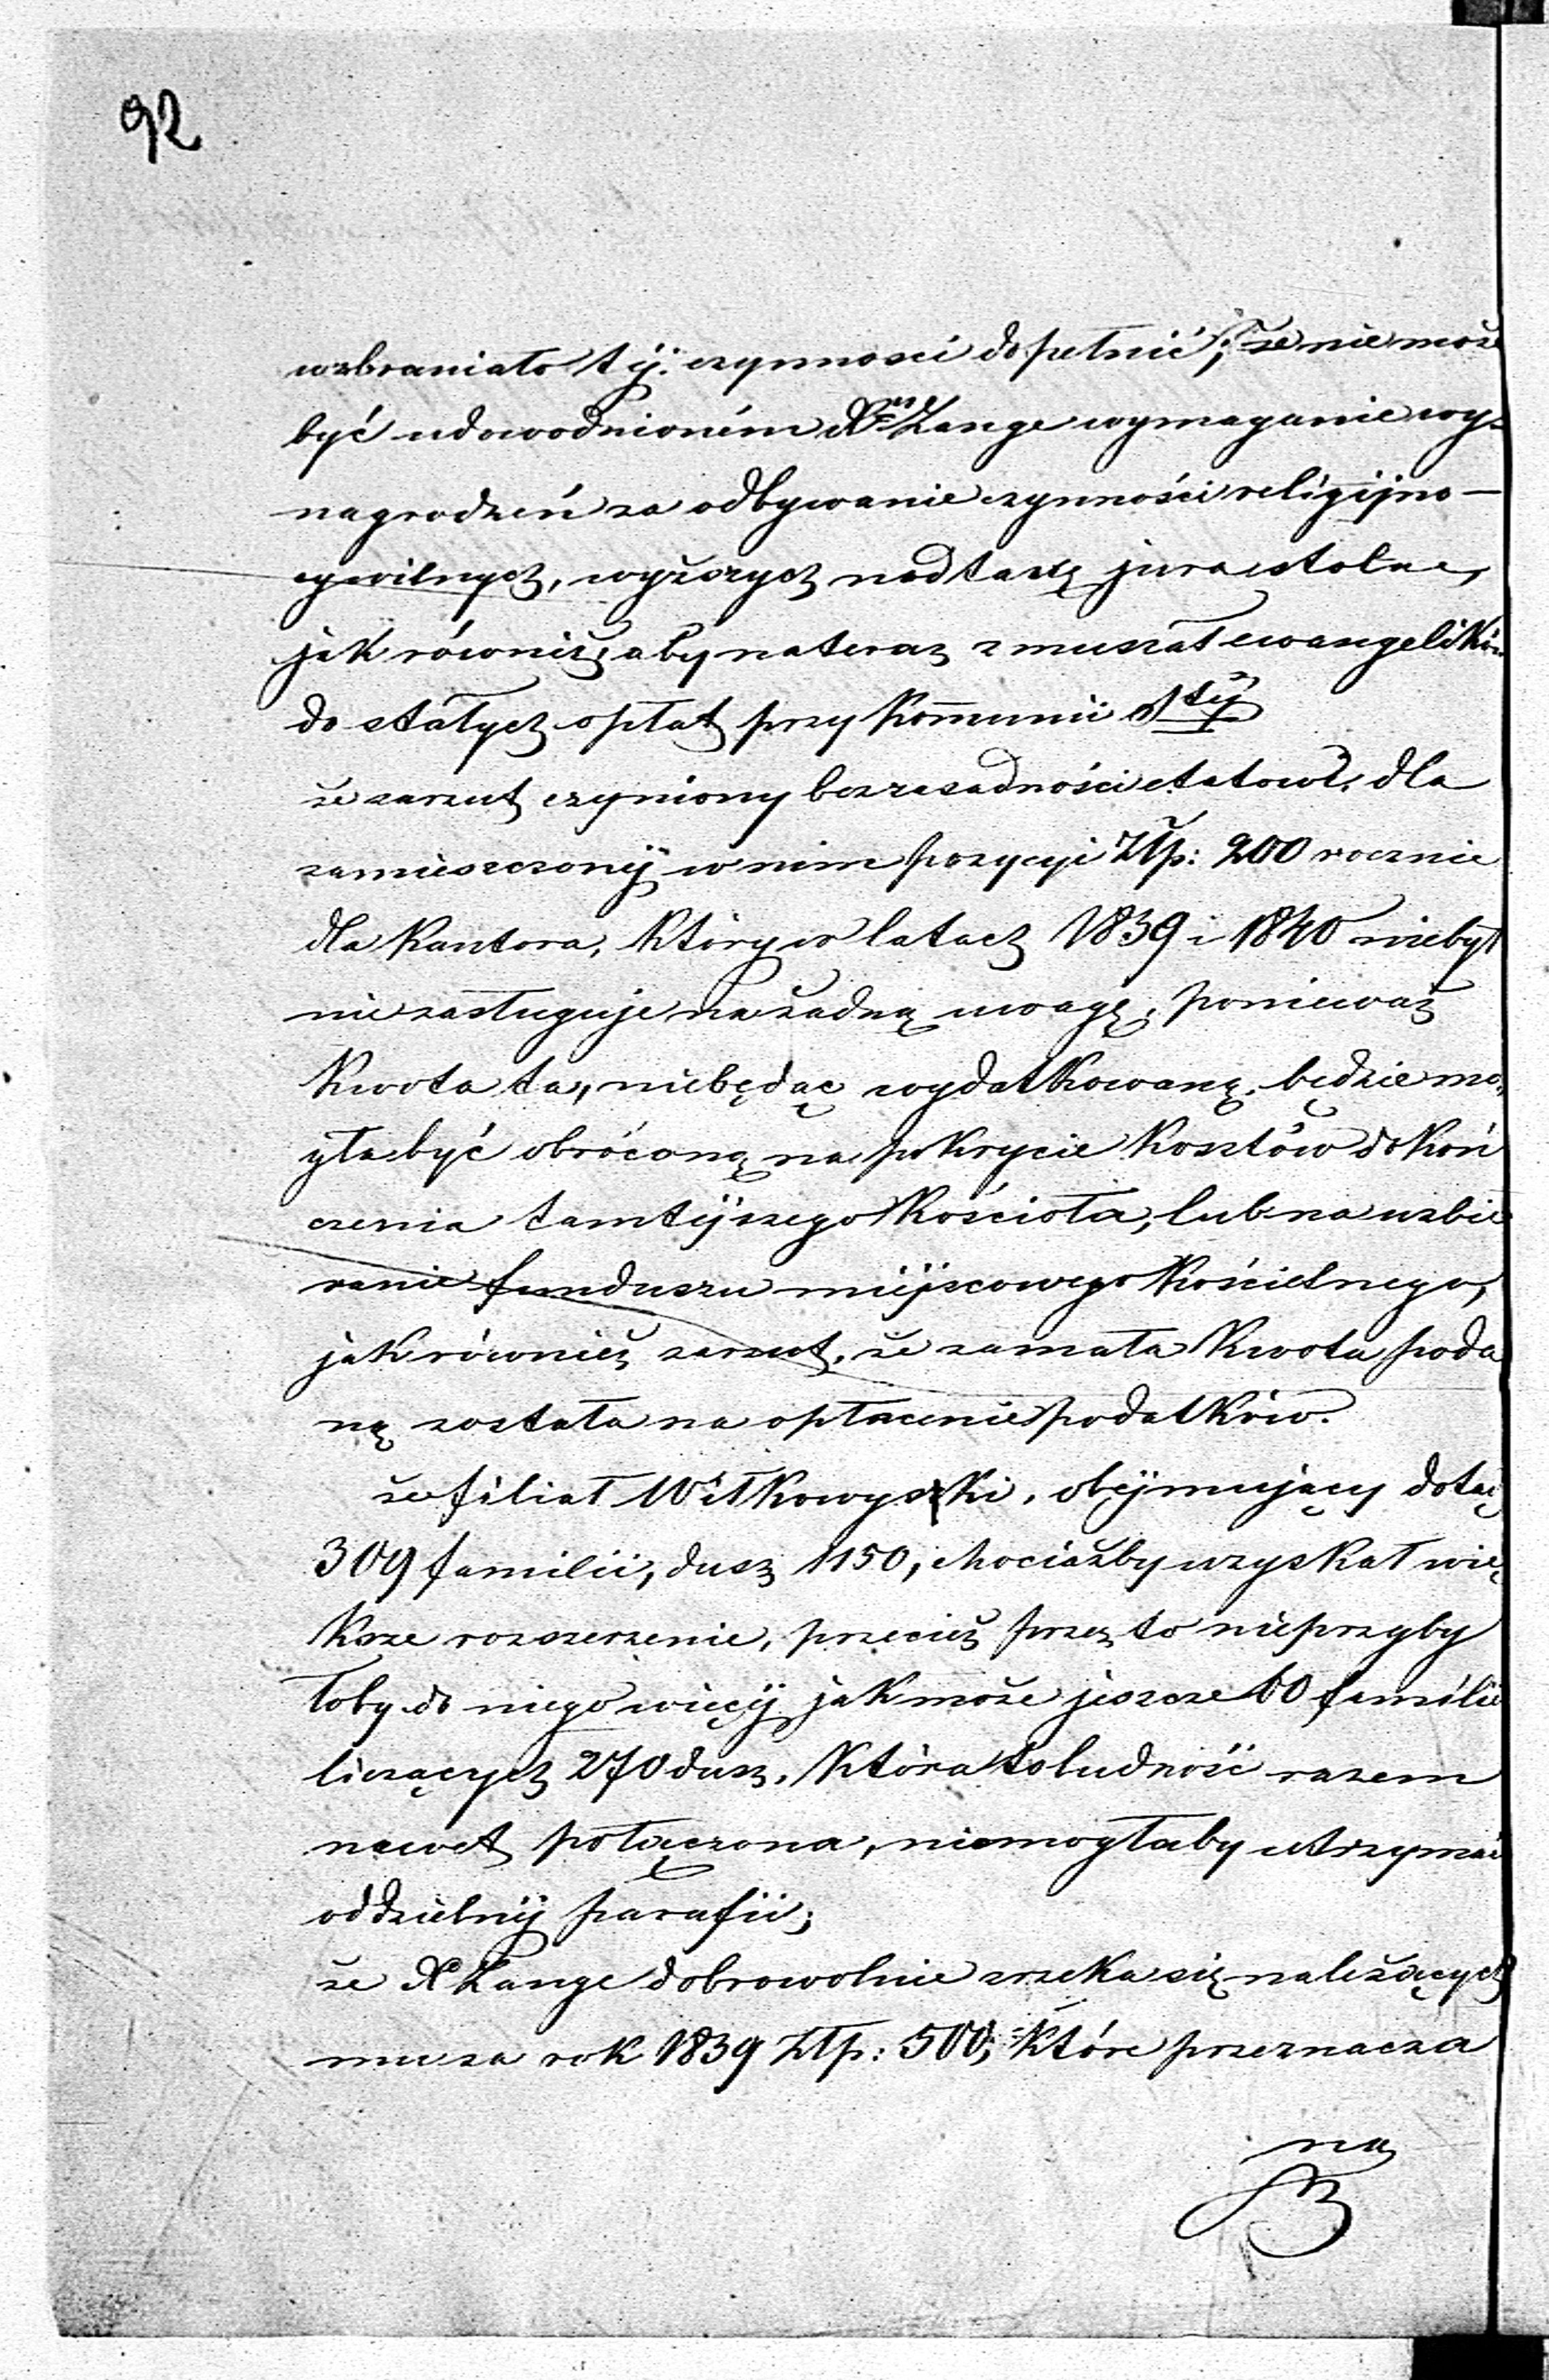 92
wzbraniało téj czynnosci dopełnić; że nie może
być udowodnioném Xu Lange wymaganie wy=
nagrodzeń za odbywanie czynności religijno-
cywilnych, wyższych nad taxę jura stolae,
jak również, aby nateraz zmuszał ewangelików
do stałych opłat przy Kommunii Stéj
że zarzut czyniony bezzasadności etatowi, dla
zamieszczonéj w nim pozycyi Złp: 200 rocznie
dla Kantora, który w latach 1839 i 1840 niebył
nie zasługuje na żadną uwagę, ponieważ
Kwota ta, niebędąc wydatkowaną, będzie mo,
gła być obróconą na pokrycie Kosztów dokoń
czenia tamtéjszego Kościoła, lub na uzbie
ranie funduszu miéjscowego Kościelnego,
jak również zarzut, że zamała Kwota poda
ną została na opłacenie podatków.
że filiał Witkowyski, obéjmujący dotąd
309 familii, dusz 1150, chociażby uzyskał wię
Ksze rozszerzenie, przecież przez to nieprzyby
łoby do niego więcéj jak może jeszcze 60 familii
liczących 270 dusz, Która to ludność razem
nawet połączona, niemogłaby utrzymać
oddzielnéj parafii;
że X Lange dobrowolnie zrzeka się należących
mu za rok 1839 Złp: 500, Które przeznacza
na